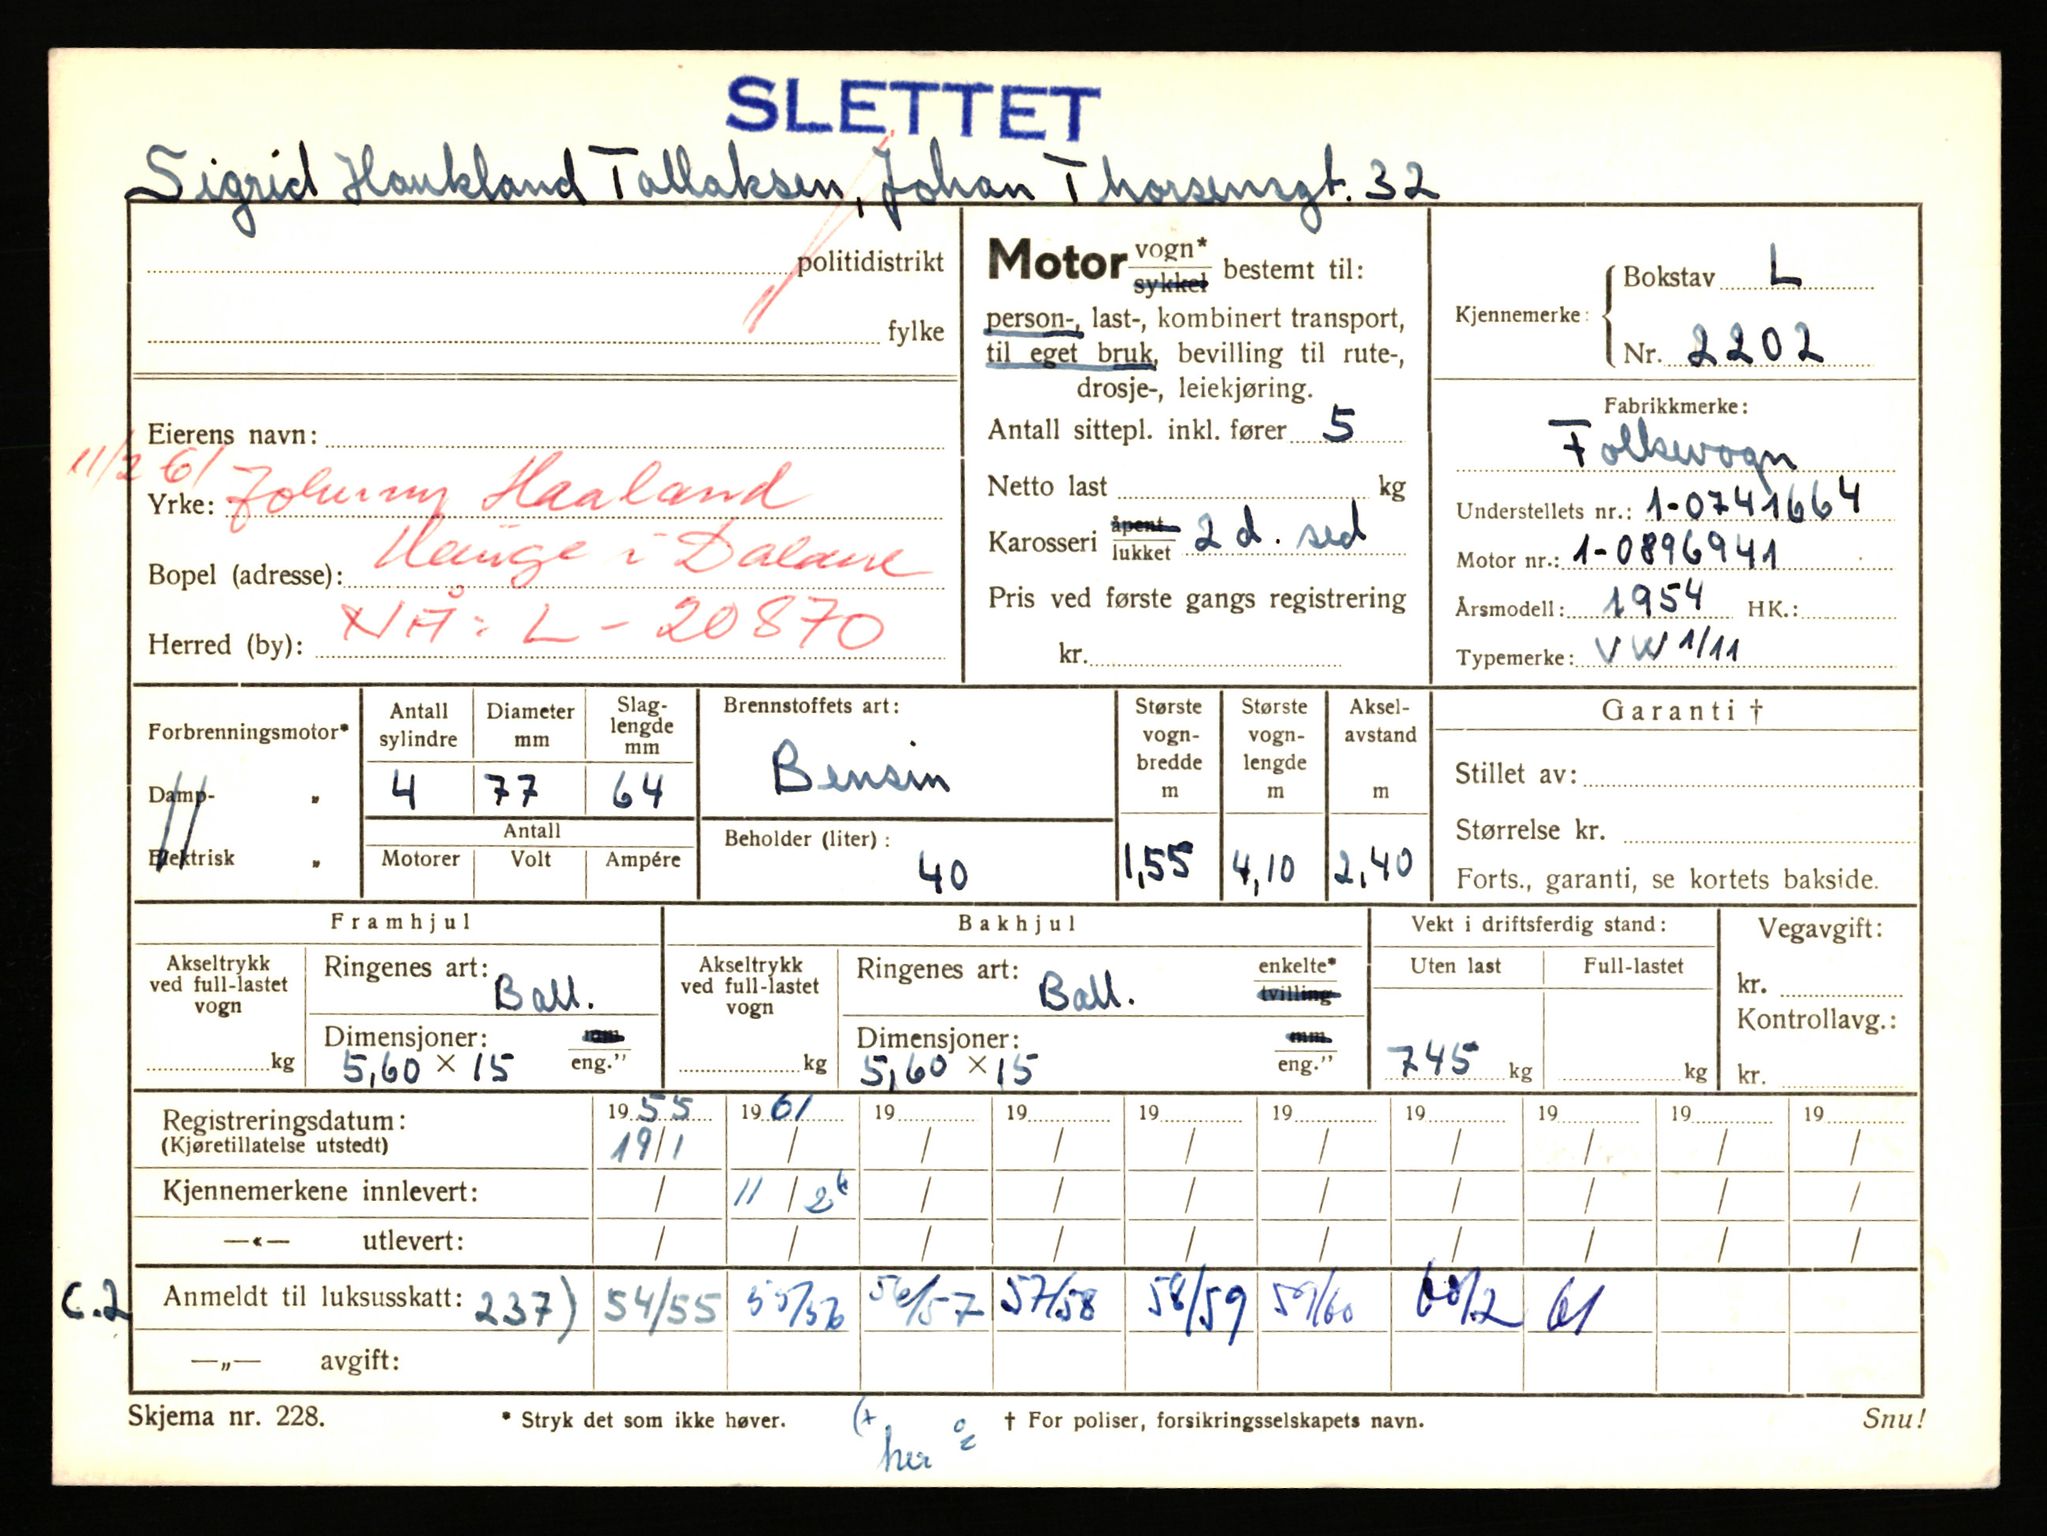 SLETTET
Sigrid Haukland Tallaksen, Johan Thorsensgt. 32
politidistrikt
fylke
Eierens navn:
11/2 61
Yrke: Johnny Haaland
Bopel (adresse): Hauge i Dalane
Herred (by): NÅ: L - 20870
Motor vogn* sykkel bestemt til:
person-, last-, kombinert transport,
til eget bruk, bevilling til rute-,
drosje-, leiekjøring.
Antall sittepl. inkl. fører 5
Netto last kg
Karosseri åpent lukket 2 d. sed
Pris ved første gangs registrering
kr.
Kjennemerke: Bokstav L
Nr. 2202
Fabrikkmerke:
Folkevogn
Understellets nr.: 1-0741664
Motor nr.: 1-0896941
Årsmodell: 1954 HK.:
Typemerke: VW 1/11
Forbrenningsmotor*
Damp- „
Elektrisk „
Antall sylindre
Diameter mm
Slag-lengde mm
4 77 64
Antall
Motorer Volt Ampére
Brennstoffets art:
Bensin
Beholder (liter):
40
Største vogn-bredde m
1,55
Største vogn-lengde m
4,10
Aksel-avstand m
2,40
Garanti †
Stillet av:
Størrelse kr.
Forts., garanti, se kortets bakside.
Framhjul
Akseltrykk ved full-lastet vogn
kg
Ringenes art: Ball.
Dimensjoner: mm
5,60 × 15 eng.”
Bakhjul
Akseltrykk ved full-lastet vogn
kg
Ringenes art: Ball. enkelte* tvilling
Dimensjoner: mm
5,60 × 15 eng.”
Vekt i driftsferdig stand:
Uten last Full-lastet
745 kg kg
Vegavgift:
kr.
Kontrollavg.:
kr.
Registreringsdatum: 19 55 19 61 19 19 19 19 19 19 19 19
(Kjøretillatelse utstedt) 19/1 / / / / / / / / /
Kjennemerkene innlevert: / 11 / 2 / / / / / / / /
—«— utlevert: / / / / / / / / / /
C.2 Anmeldt til luksusskatt: 237) 54/55 55/56 56/57 57/58 58/59 59/60 60/2 61
—„— avgift:
Skjema nr. 228.
* Stryk det som ikke høver.
† For poliser, forsikringsselskapets navn.
Snu!
her